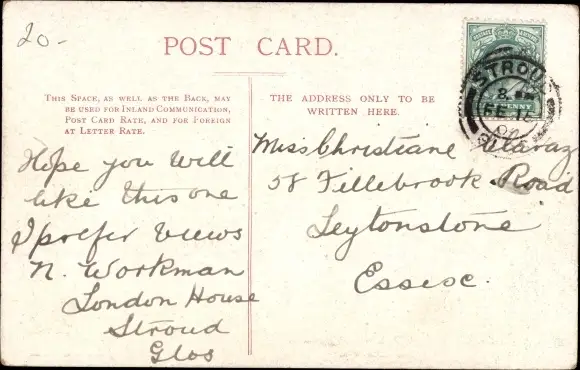 20-
POST CARD.
THIS SPACE, AS WELL AS THE BACK, MAY
BE USED FOR INLAND COMMUNICATION,
POST CARD RATE, AND FOR FOREIGN
AT LETTER RATE.
THE ADDRESS ONLY TO BE
WRITTEN HERE.
STROUD
PENNY
Hope you will
like this one
I prefer views
N. Workman
London House
Stroud
Glos
Miss Christiane
58 Fillebrook Road
Leytonstone
Essex.